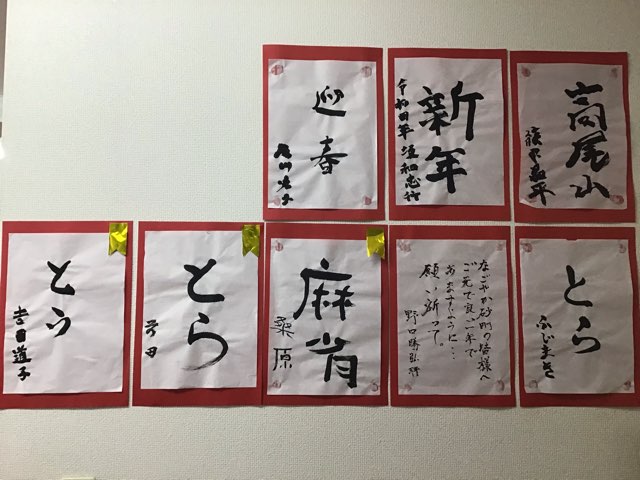 迎春
新年
令和四年
高尾山
とら
吉田道子
とら
麻雀
桑原
なごやか砂町の皆様へ
ご元気で良い一年で
ありますように…
願い祈って。
とら
ふじまき